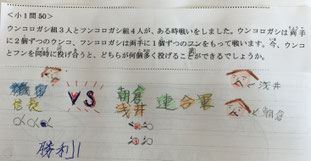 ＜小１問50＞
ウンコロガシ組３人とフンコロガシ組４人が、ある時戦いをしました。ウンコロガシは両手
に２個ずつのウンコ、フンコロガシは両手に１個ずつのフンをもって戦います。今、ウンコ
とフンを同時に投げ合うと、どちらが何個多く投げることができるでしょうか。
織田
信長
VS
朝倉
浅井
連合軍
浅井
朝倉
勝利!